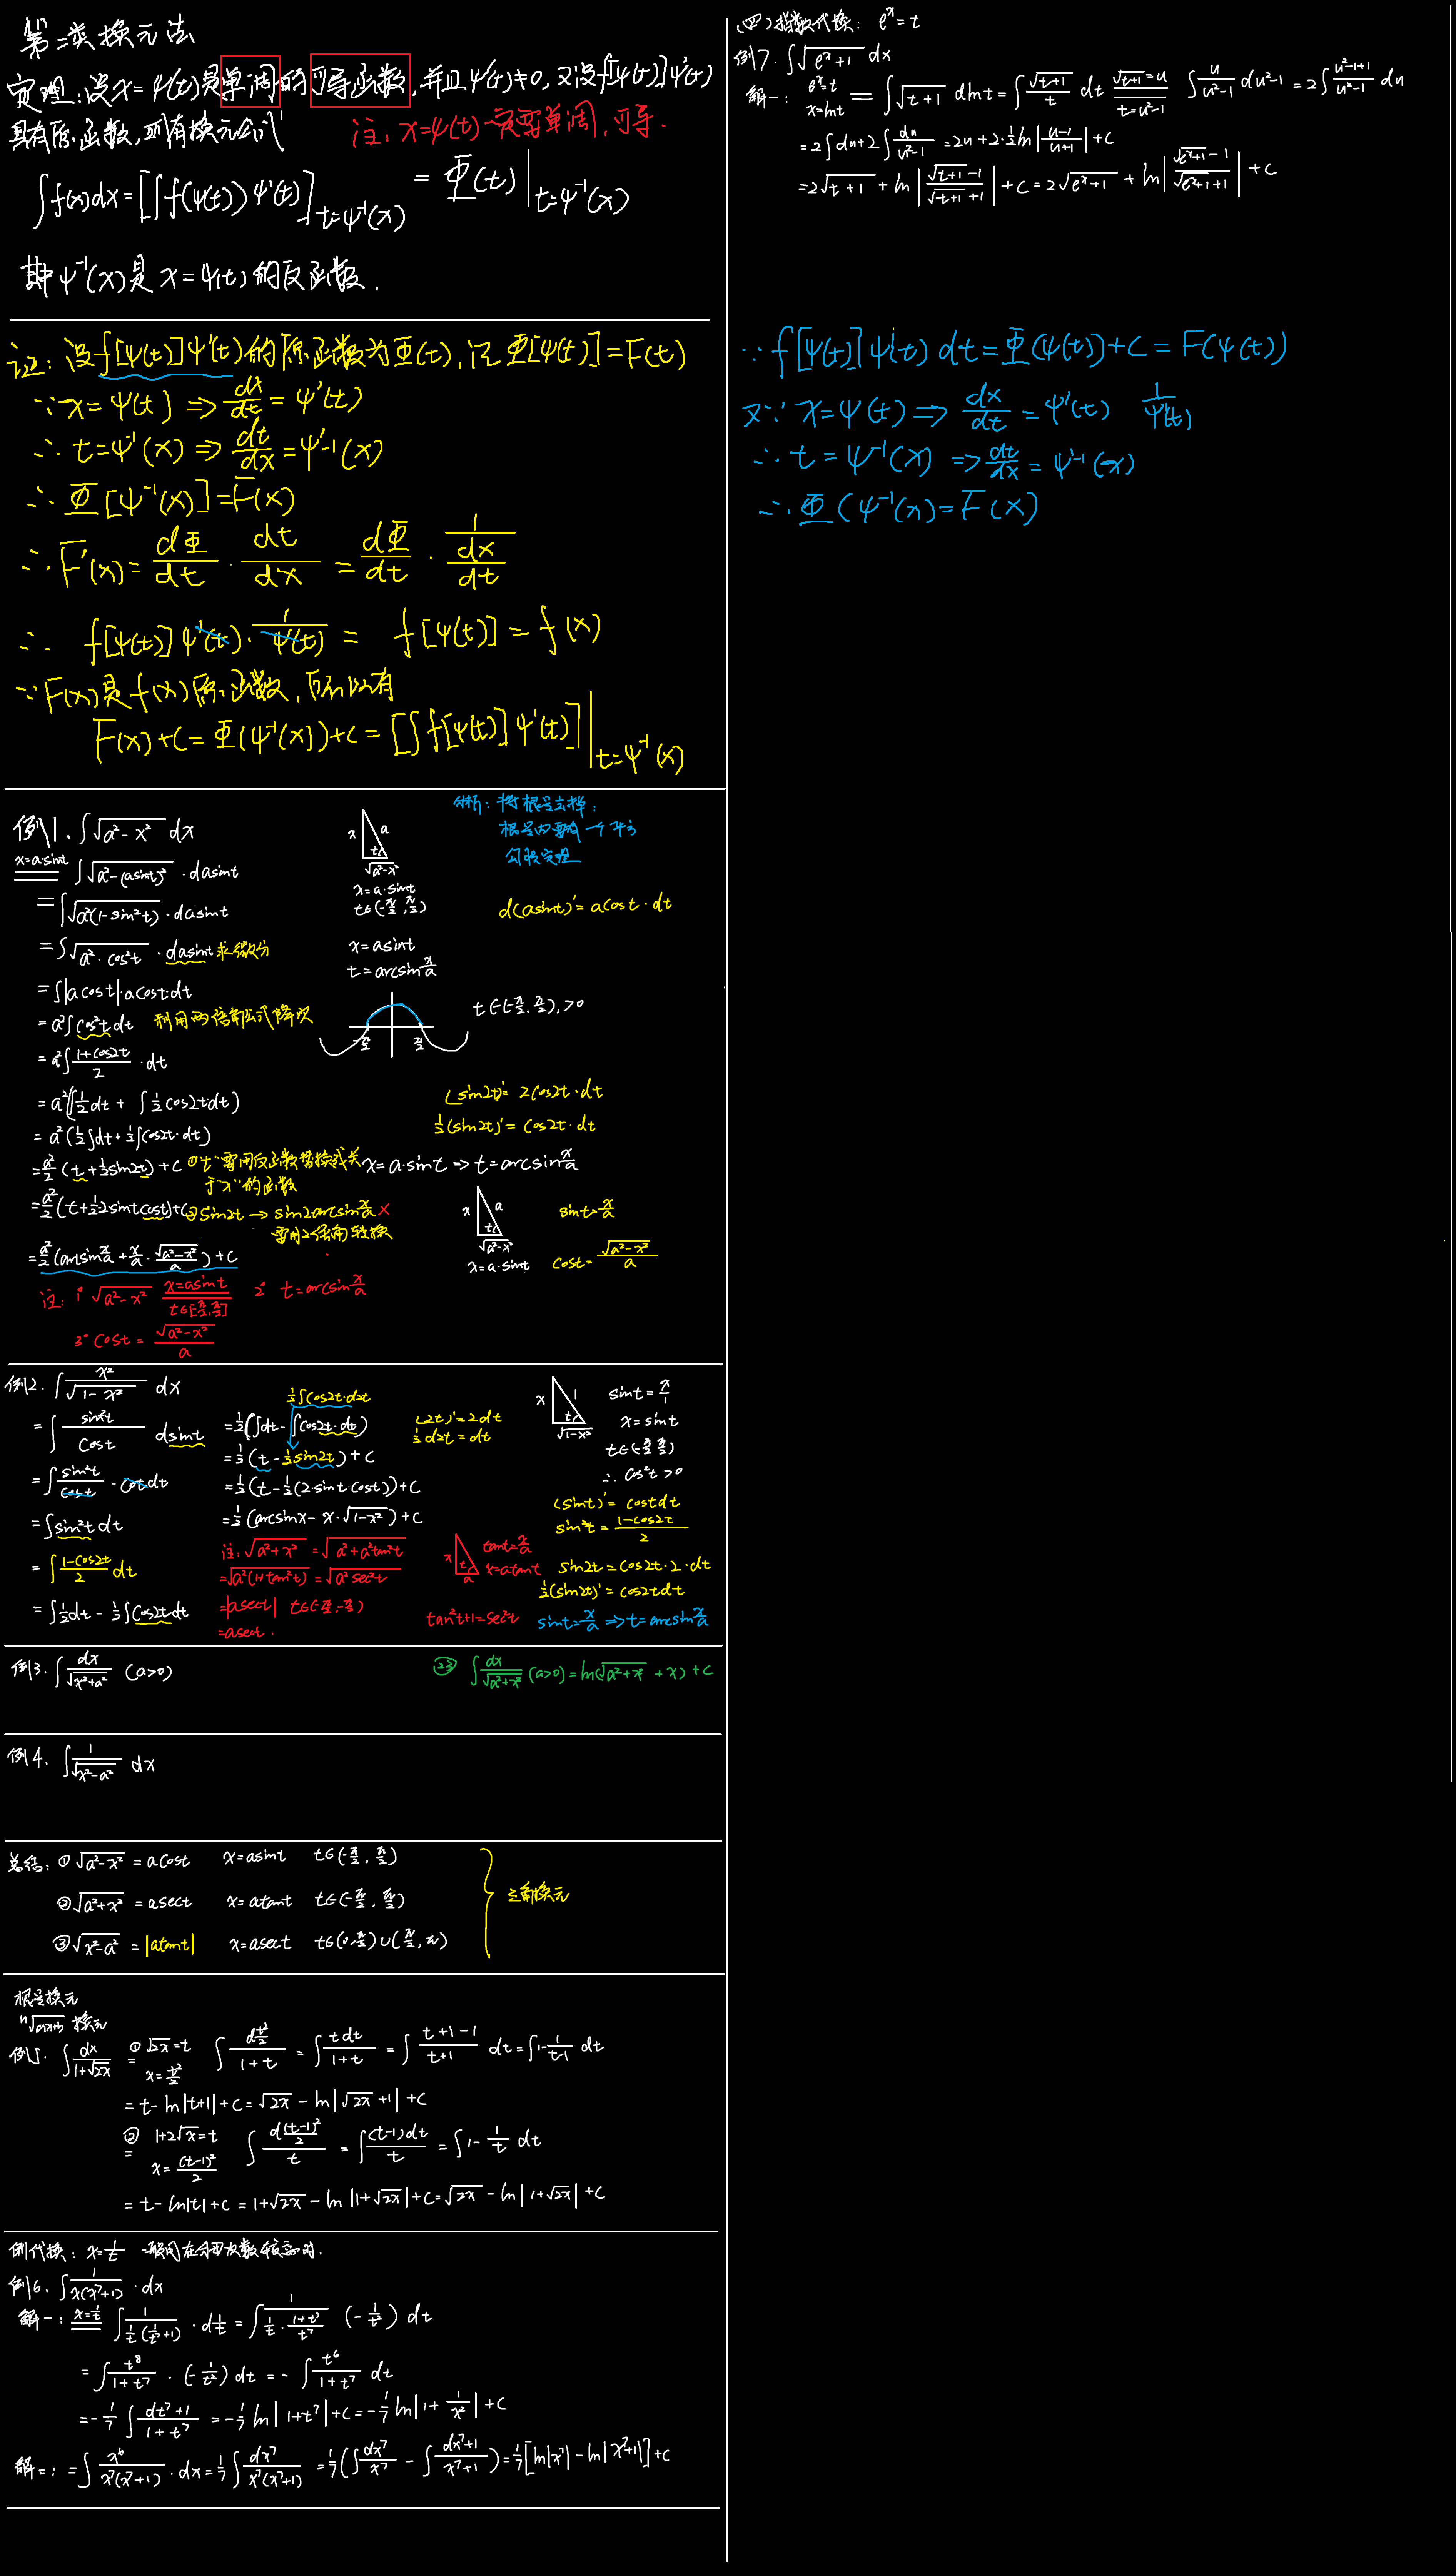 第二类换元法
定理:设x=ψ(t)是单调的可导函数,并且ψ'(t)≠0,又设f[ψ(t)]ψ'(t)
具有原函数,则有换元公式
注:x=ψ(t)一定要单调,可导.
∫f(x)dx=[∫f(ψ(t))ψ'(t)]_{t=ψ⁻¹(x)} = Φ(t)|_{t=ψ⁻¹(x)}
其中ψ⁻¹(x)是x=ψ(t)的反函数.
证:设f[ψ(t)]ψ'(t)的原函数为Φ(t),记Φ[ψ(t)]=F(t)
∵x=ψ(t)⇒dx/dt=ψ'(t)
∴t=ψ⁻¹(x)⇒dt/dx=ψ'⁻¹(x)
∴Φ[ψ⁻¹(x)]=F(x)
∴F'(x)=dΦ/dt·dt/dx=dΦ/dt·1/(dx/dt)
∴f[ψ(t)]ψ'(t)·1/ψ'(t)=f[ψ(t)]=f(x)
∵F(x)是f(x)原函数,所以有
F(x)+C=Φ(ψ⁻¹(x))+C=[∫f[ψ(t)]ψ'(t)]|_{t=ψ⁻¹(x)}
例1、∫√(a²-x²) dx
分析:将根号去掉:
根号内要有一个平方
勾股定理
x a t √(a²-x²)
x=a·sint
t∈(-π/2,π/2)
x=asint ∫√(a²-(asint)²)·dasint
=∫√(a²(1-sin²t))·dasint
d(asint)'=acost·dt
=∫√(a²·cos²t)·dasint 求微分
x=asint
t=arcsin x/a
=∫|acost|·acost·dt
t∈(-π/2,π/2),>0
-π/2 π/2
=a²∫cos²t dt 利用两倍角公式降次
=a²∫(1+cos2t)/2·dt
=a²(∫½dt+∫½cos2t·dt)
(sin2t)'=2cos2t·dt
½(sin2t)'=cos2t·dt
=a²(½∫dt+½∫cos2t·dt)
=a²/2(t+½sin2t)+C ①"t"需用反函数替换成关
于"x"的函数
x=a·sint⇒t=arcsin x/a
=a²/2(t+½2sint cost)+C ②sin2t→sin2arcsin x/a ×
需用2倍角转换
x a t √(a²-x²)
x=a·sint
sint=x/a
cost=√(a²-x²)/a
=a²/2(arcsin x/a+x/a·√(a²-x²)/a)+C
注:1°√(a²-x²) x=asint t∈[-π/2,π/2] 2° t=arcsin x/a
3° cost=√(a²-x²)/a
例2.∫x²/√(1-x²) dx
=∫sin²t/cost dsint
=∫sin²t/cost·cost dt
=∫sin²t dt
=∫(1-cos2t)/2 dt
=∫½dt-½∫cos2t dt
½∫cos2t·d2t
=½(∫dt-∫cos2t·dt)
=½(t-½sin2t)+C
=½(t-½(2·sint·cost))+C
=½(arcsinx-x·√(1-x²))+C
(2t)'=2dt
½d2t=dt
x 1 t √(1-x²)
sint=x/1
x=sint
t∈(-π/2,π/2)
∴cos²t>0
(sint)'=costdt
sin²t=(1-cos2t)/2
sin2t=cos2t·2·dt
½(sin2t)'=cos2tdt
sint=x/a⇒t=arcsin x/a
注:√(a²+x²)=√(a²+a²tan²t)
=√(a²(1+tan²t))=√(a²sec²t)
=|asect| t∈(-π/2,-π/2)
=asect.
x t a
tant=x/a
x=atant
tan²t+1=sec²t
例3.∫dx/√(x²+a²) (a>0)
㉓ ∫dx/√(a²+x²) (a>0)=ln(√(a²+x²)+x)+C
例4.∫1/√(x²-a²) dx
总结:①√(a²-x²)=acost x=asint t∈(-π/2,π/2)
②√(a²+x²)=asect x=atant t∈(-π/2,π/2)
③√(x²-a²)=|atant| x=asect t∈(0,π/2)∪(π/2,π)
三角换元
根号换元
ⁿ√(ax+b) 换元
例5.∫dx/(1+√2x) ①√2x=t x=t²/2 = ∫d(t²/2)/(1+t)=∫tdt/(1+t)=∫(t+1-1)/(t+1) dt=∫1-1/(t-1) dt
=t-ln|t+1|+C=√2x-ln|√2x+1|+C
② 1+2√x=t x=(t-1)²/2 = ∫d((t-1)²/2)/t=∫(t-1)dt/t=∫1-1/t dt
=t-ln|t|+C=1+√2x-ln|1+√2x|+C=√2x-ln|1+√2x|+C
倒代换:x=1/t 一般用在分母次数较高时.
例6.∫1/(x(x⁷+1))·dx
解一:x=1/t ∫1/(1/t(1/t⁷+1))·d1/t=∫1/(1/t·(1+t⁷)/t⁷) (-1/t²) dt
=∫t⁸/(1+t⁷)·(-1/t²)dt=-∫t⁶/(1+t⁷) dt
=-1/7∫dt⁷+1/(1+t⁷)=-1/7 ln|1+t⁷|+C=-1/7 ln|1+1/x⁷|+C
解二:=∫x⁶/(x⁷(x⁷+1))·dx=1/7∫dx⁷/(x⁷(x⁷+1))=1/7(∫dx⁷/x⁷-∫dx⁷+1/(x⁷+1))=1/7[ln|x⁷|-ln|x⁷+1|]+C
(四)指数代换:eˣ=t
例7.∫√(eˣ+1) dx
解一:eˣ=t x=lnt = ∫√(t+1) dlnt=∫√(t+1)/t dt √(t+1)=u t=u²-1 ∫u/(u²-1) du²-1=2∫(u²-1+1)/(u²-1) du
=2∫du+2∫du/(u²-1)=2u+2·½ln|(u-1)/(u+1)|+C
=2√(t+1)+ln|(√(t+1)-1)/(√(t+1)+1)|+C=2√(eˣ+1)+ln|(√(eˣ+1)-1)/(√(eˣ+1)+1)|+C
∵f[ψ(t)]ψ'(t)dt=Φ(ψ(t))+C=F(ψ(t))
又∵x=ψ(t)⇒dx/dt=ψ'(t) 1/ψ'(t)
∴t=ψ⁻¹(x)⇒dt/dx=ψ'⁻¹(x)
∴Φ(ψ⁻¹(x)=F(x)